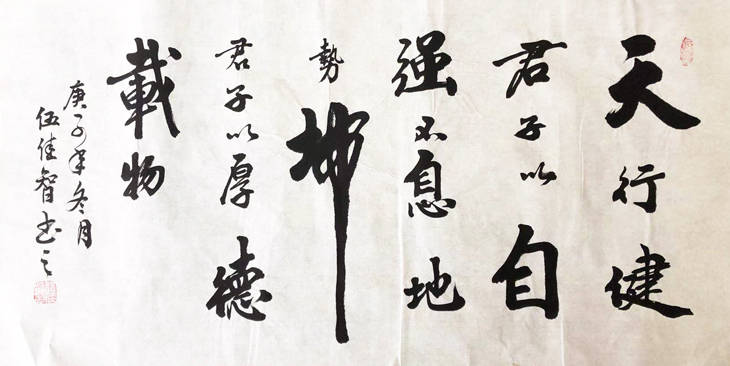 天行健
君子以自
强不息地
勢坤
君子以厚德
載物
庚子年冬月
伍佳智书之